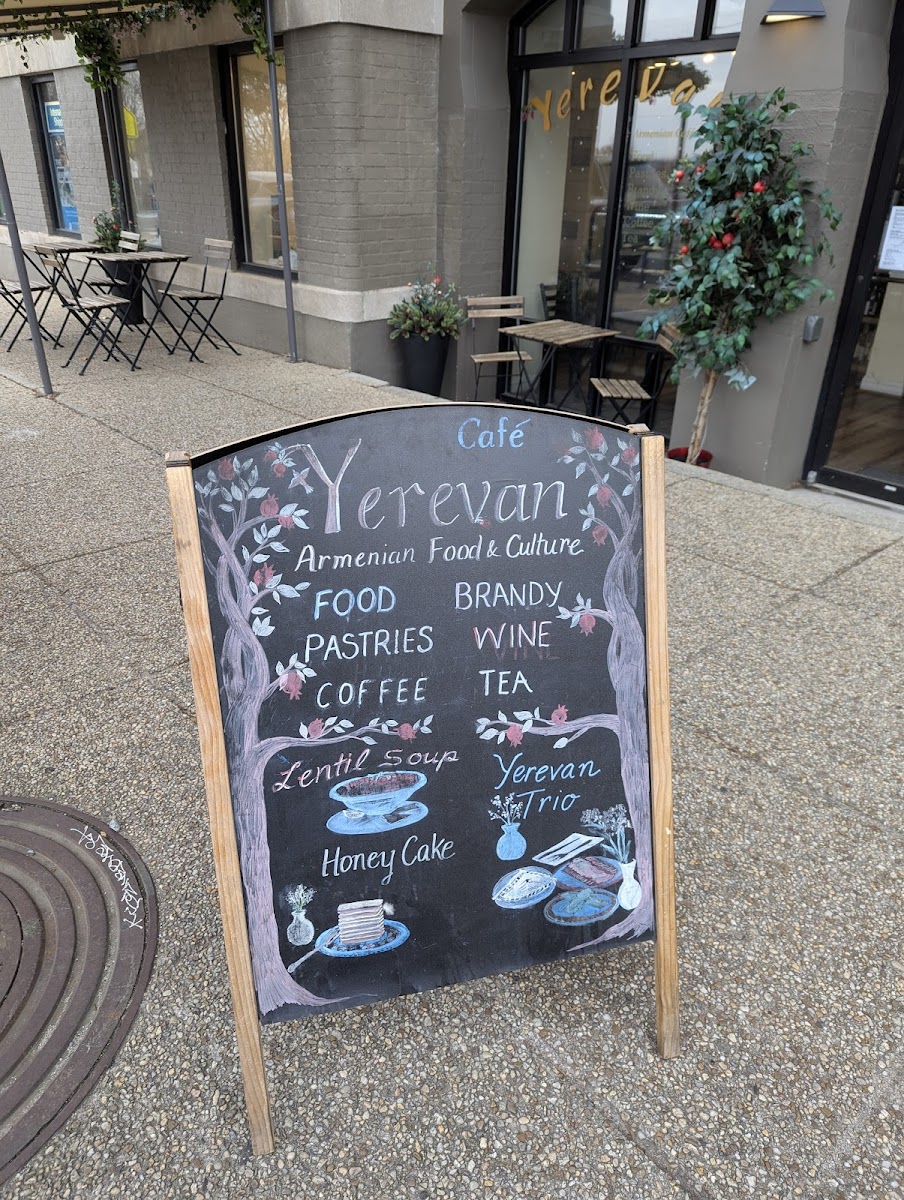 Yereva
Armenian
Café
Yerevan
Armenian Food & Culture
FOOD
BRANDY
PASTRIES
WINE
COFFEE
TEA
Lentil Soup
Yerevan
Trio
Honey Cake